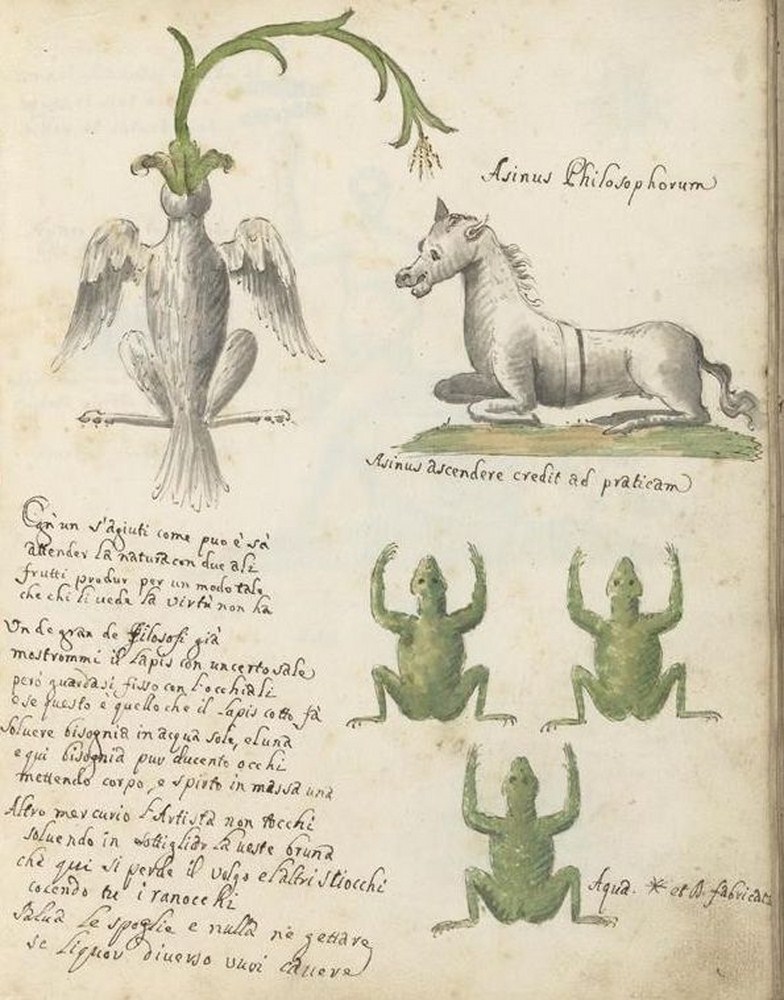 Asinus Philosophorum
Asinus ascendere credit ad praticam
Ogn'un s'agiuti come puo e sa
attender la natura con due ali
frutti produr per un modo tale
che chi li vede la virtù non ha
Un de gran de Filosofi già
mostrommi il Lapis con un certo sale
però guardasi fisso con l'occhiali
e se questo è quello che il Lapis cotto fà
Soluere bisognia in acqua sole, e luna
e qui bisognia pur ducento occhi
mettendo corpo, e spirto in massa una
Altro mercurio l'Artista non tocchi
soluendo in sottigliar La ueste bruna
chè qui si perde il volgo e l'altri stiocchi
cocendo tu i ranocchi
Salua le spoglie e nulla ne gettare
se Liquor diverso vuoi cauere
Aqua. et fabricata